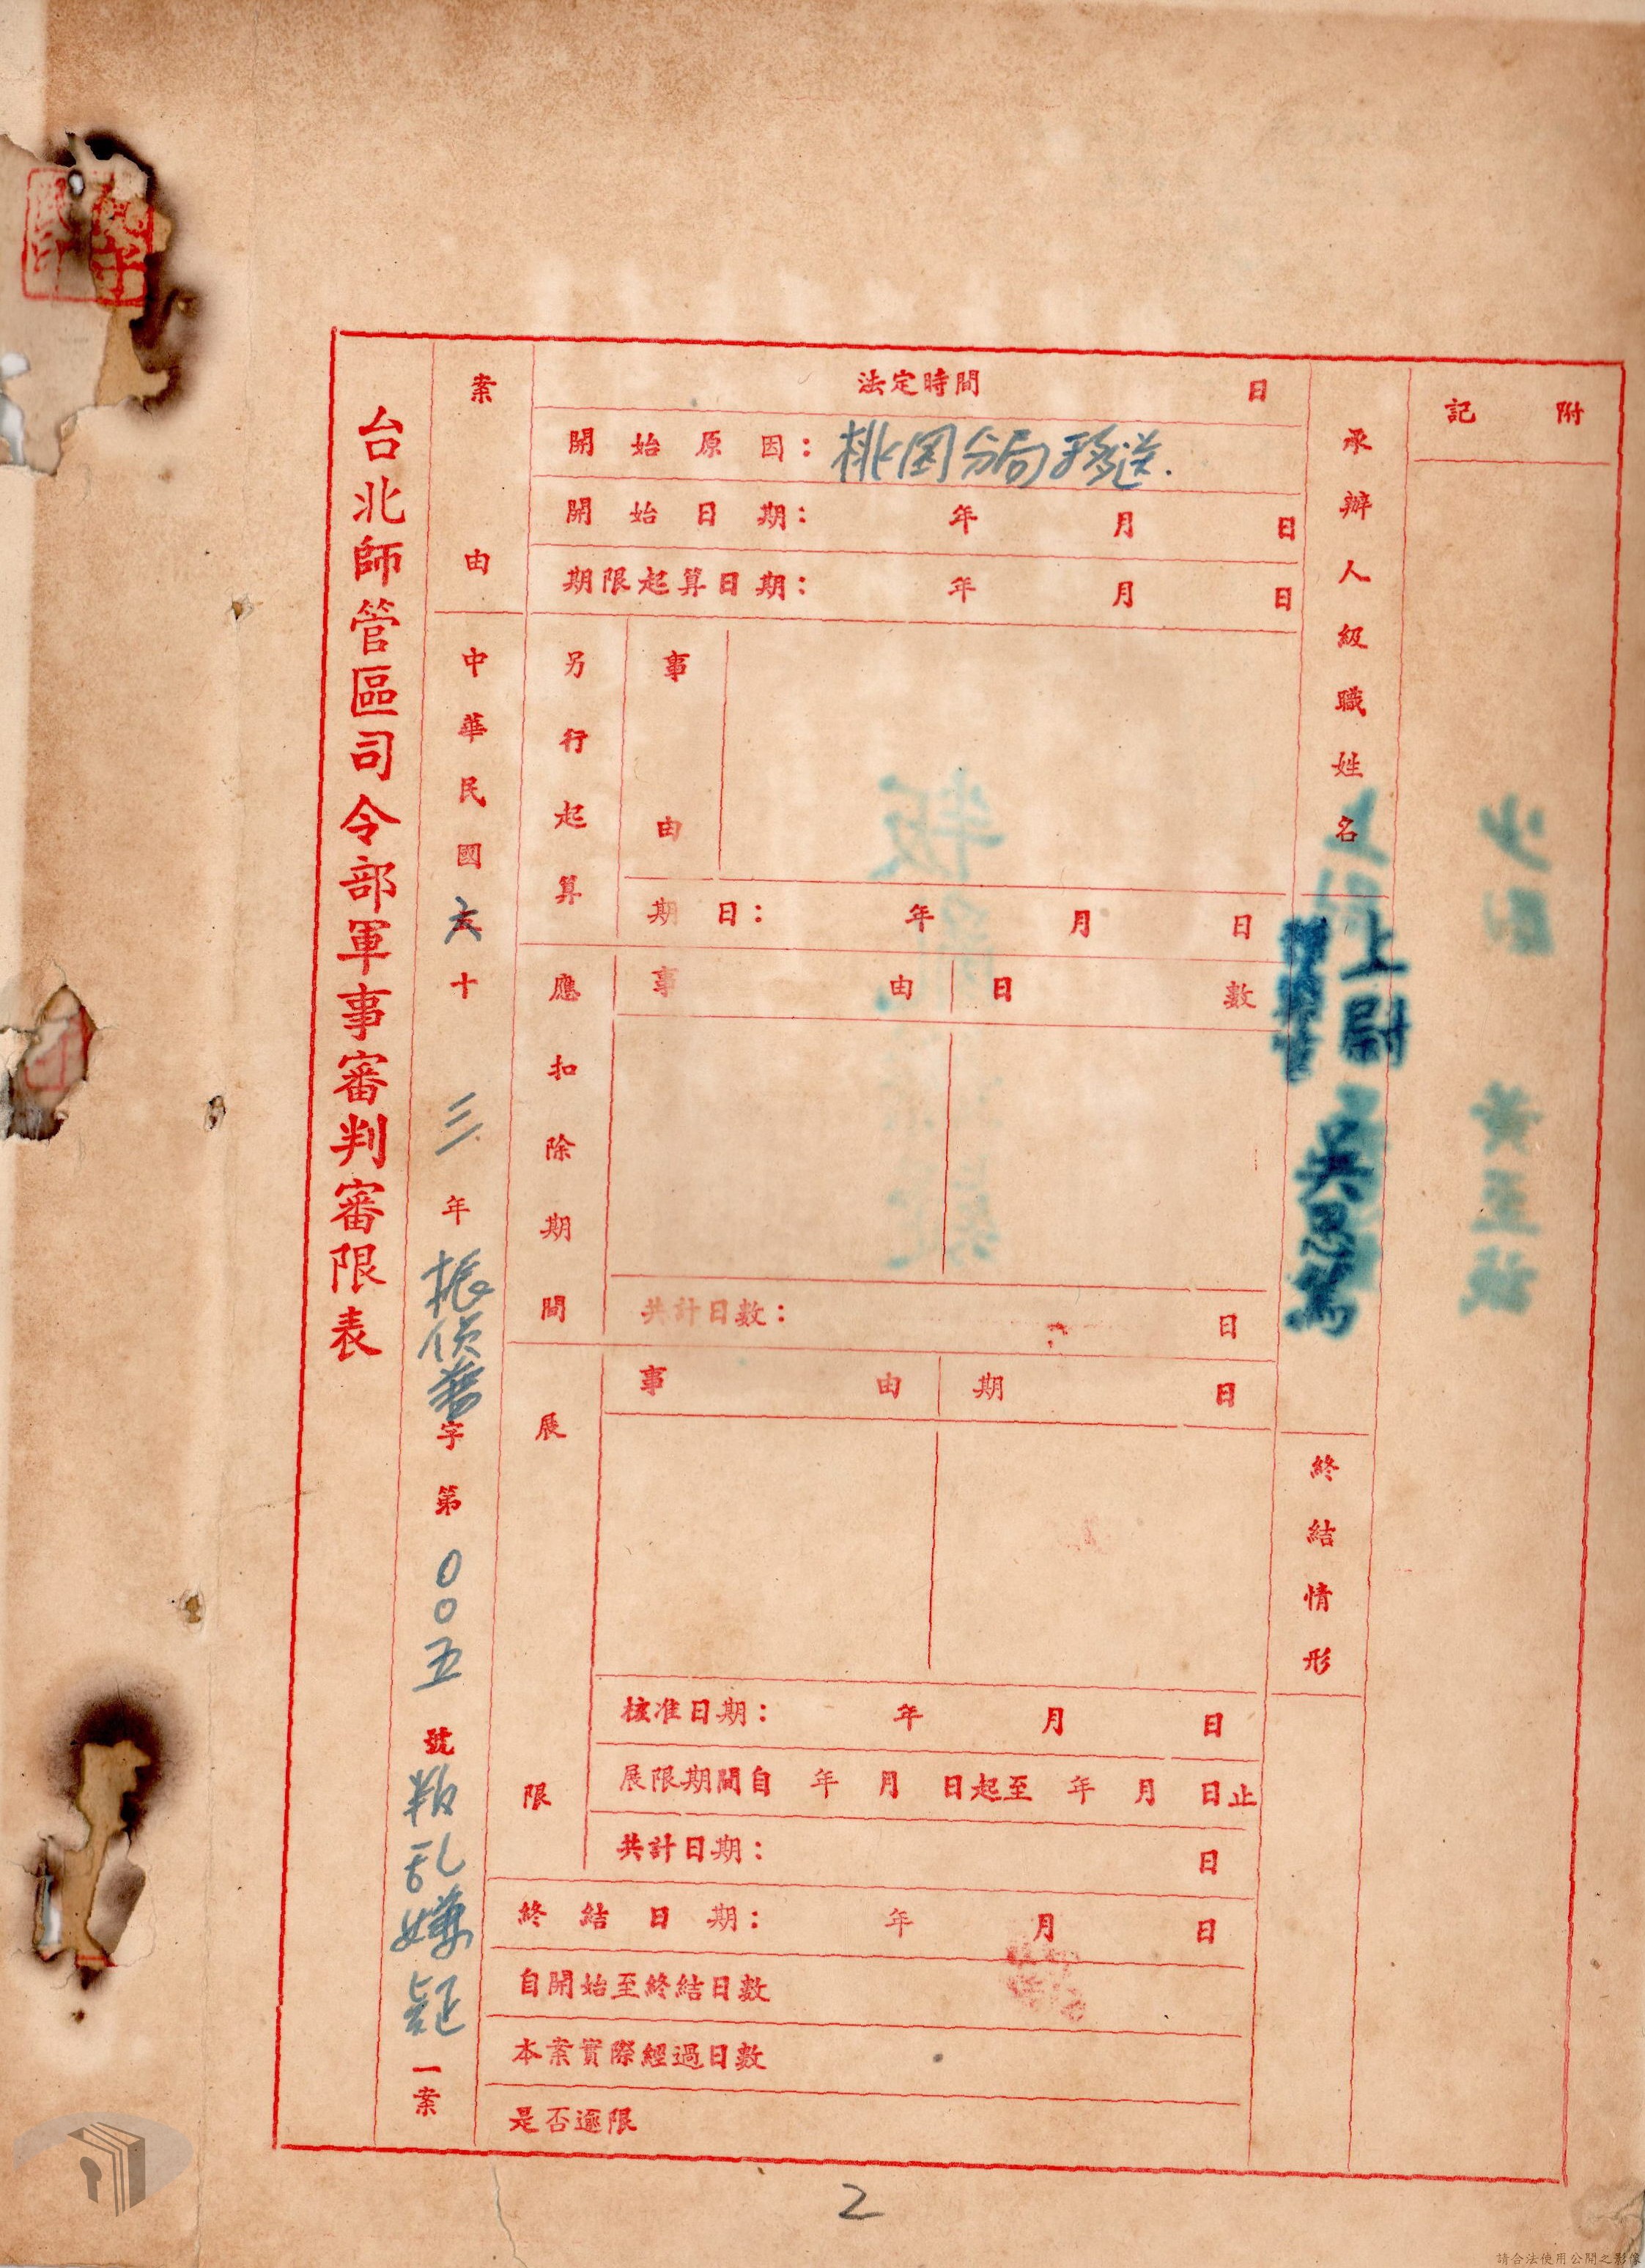 台北師管區司令部軍事審判審限表
案由
中華民國六十三年振偵
字第００五號叛乱嫌疑一案
法定時間 日
開始原因：桃園分局移送.
開始日期： 年 月 日
期限起算日期： 年 月 日
另行起算
事由
期日： 年 月 日
應扣除期間
事由 日數
共計日數： 日
展限
事由 期日
核准日期： 年 月 日
展限期間自 年 月 日起至 年 月 日止
共計日期： 日
終結日期： 年 月 日
自開始至終結日數
本案實際經過日數
是否逾限
承辦人級職姓名
上尉
吳恩篤
終結情形
附記
黃至誠
2
請合法使用公開之影像